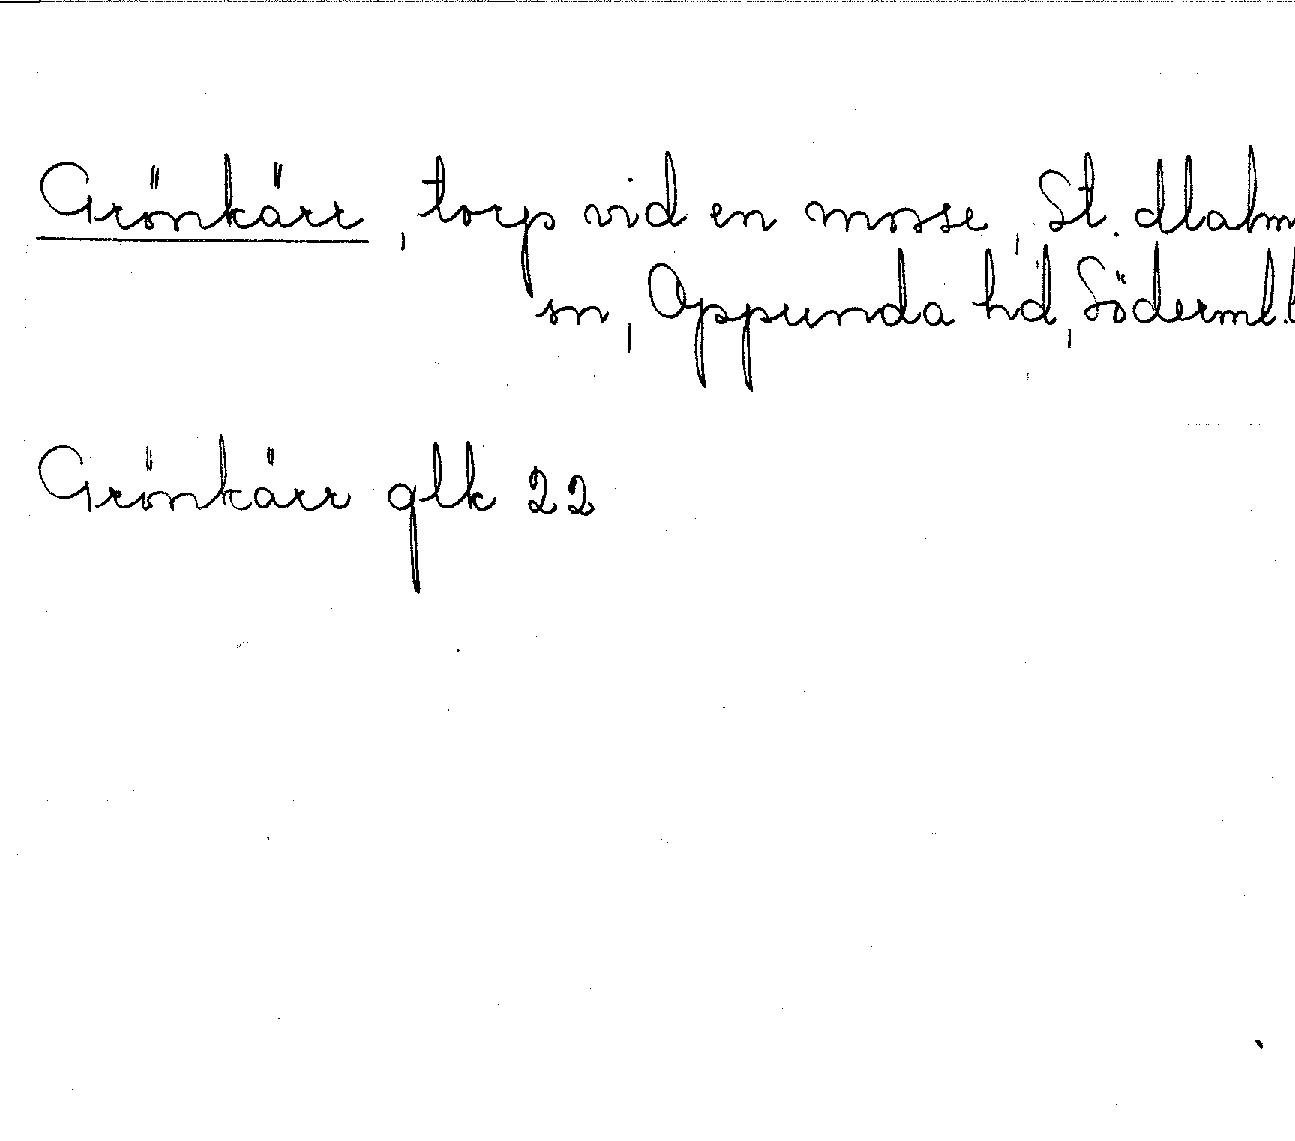 Grönkärr, torp vid en mosse, St. Malm
sn, Oppunda hd, Söderml.
Grönkärr glk 22